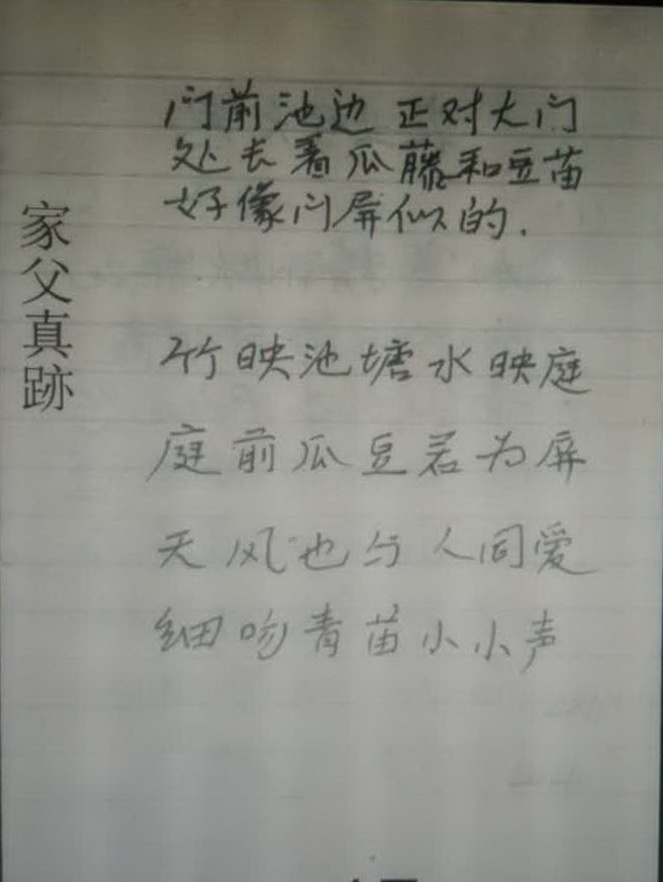 门前池边 正对大门
处去看瓜藤和豆苗
好像门屏似的.
家父真跡
竹映池塘水映庭
庭前瓜豆若为屏
天风也与人同爱
细吻青苗小小声